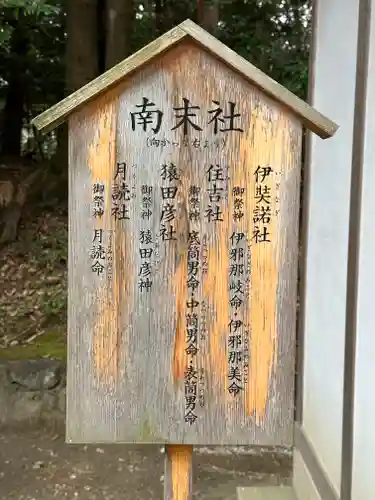 南末社
(向かって右より)
伊奘諾社
御祭神 伊邪那岐命・伊邪那美命
住吉社
御祭神 底筒男命・中筒男命・表筒男命
猿田彦社
御祭神 猿田彦神
月読社
御祭神 月読命